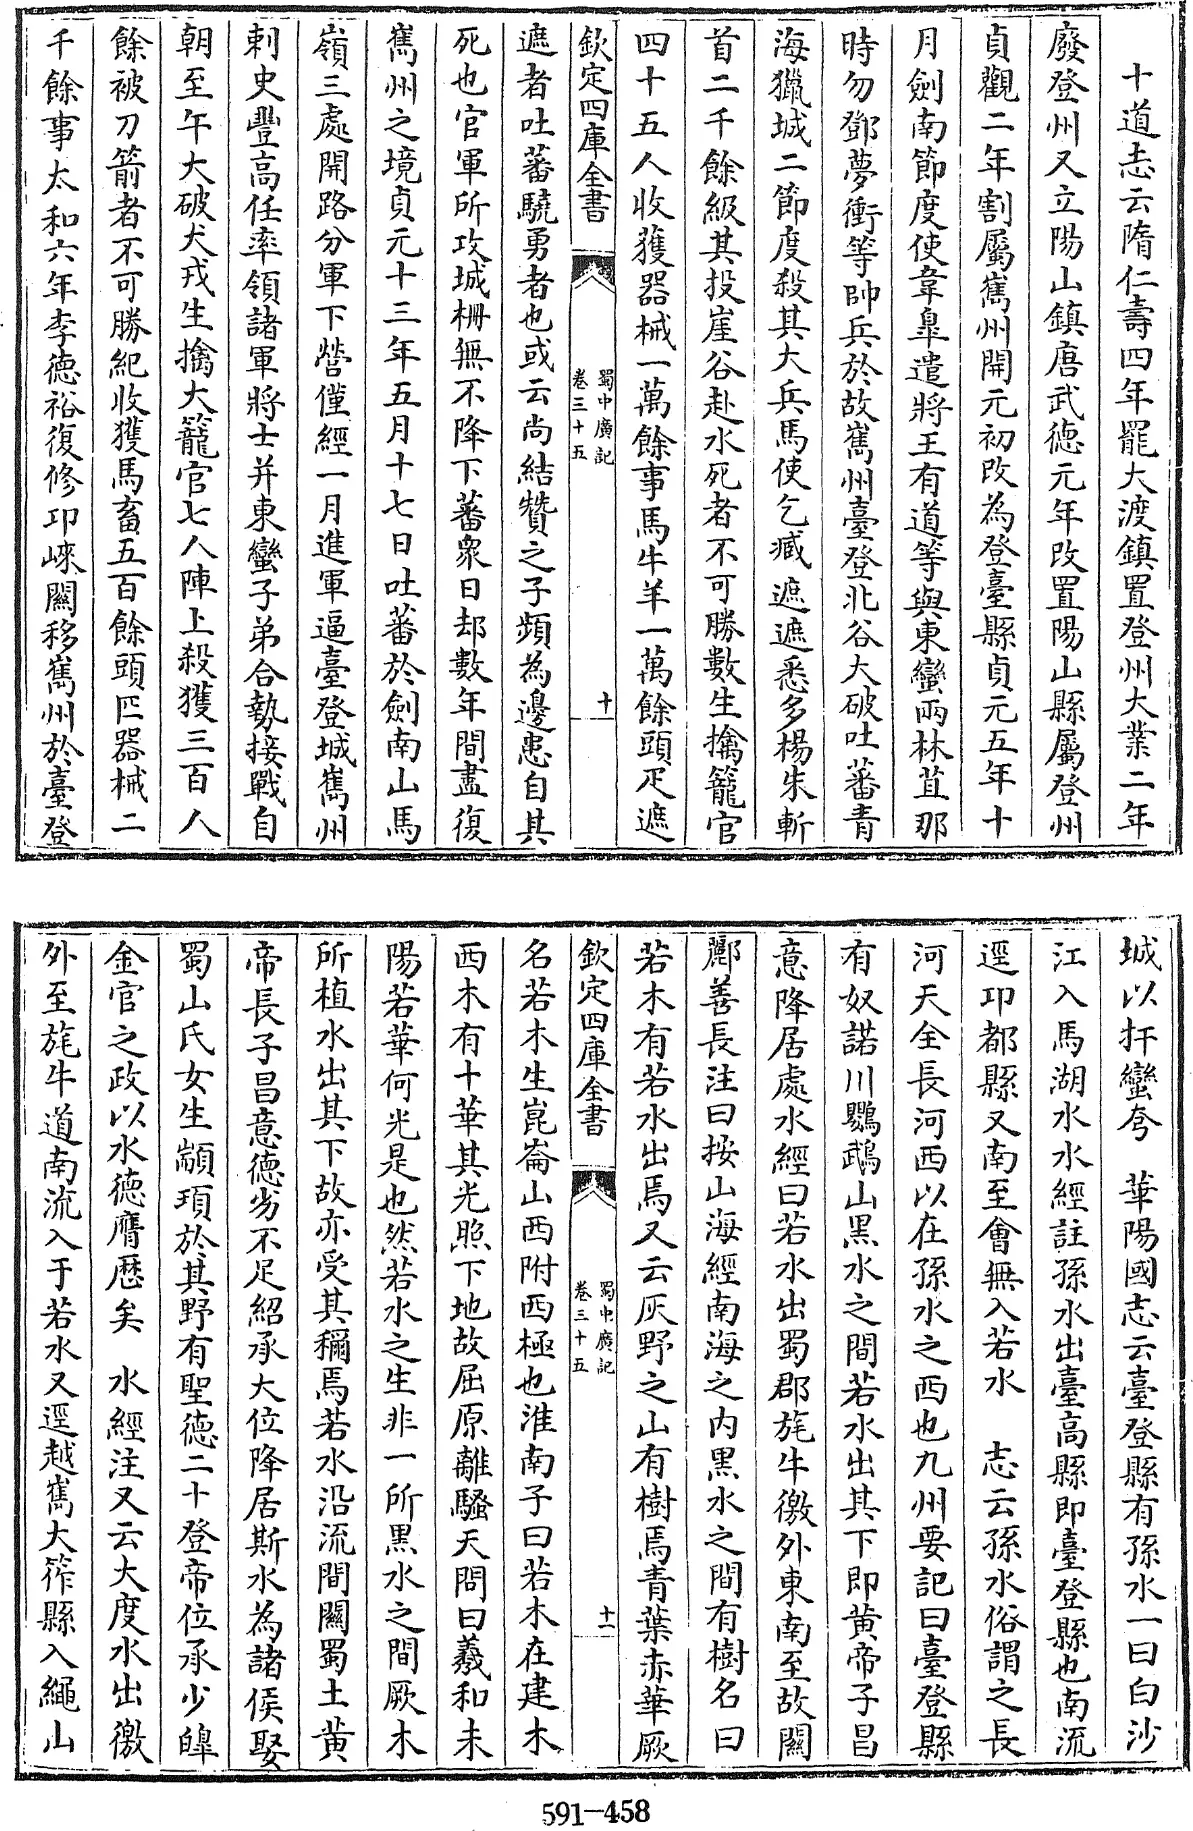 十道志云隋仁壽四年罷大渡鎮置登州大業二年
廢登州又立陽山鎮唐武德元年改置陽山縣屬登州
貞觀二年割屬巂州開元初改為登臺縣貞元五年十
月劍南節度使韋臯遣將王有道等與東蠻兩林苴那
時勿鄧夢衝等帥兵於故巂州臺登北谷大破吐蕃青
海獵城二節度殺其大兵馬使乞臧遮遮悉多楊朱斬
首二千餘級其投崖谷赴水死者不可勝數生擒籠官
四十五人收獲器械一萬餘事馬牛羊一萬餘頭疋遮
欽定四庫全書
蜀中廣記
卷三十五
十
遮者吐蕃驍勇者也或云尚結贊之子頻為邊患自其
死也官軍所攻城柵無不降下蕃衆日却數年間盡復
巂州之境貞元十三年五月十七日吐蕃於劍南山馬
嶺三處開路分軍下營僅經一月進軍逼臺登城巂州
刺史曹高任率領諸軍將士并東蠻子弟合勢接戰自
朝至午大破犬戎生擒大籠官七人陣上殺獲三百人
餘被刀箭者不可勝紀收獲馬畜五百餘頭匹器械二
千餘事太和六年李德裕復修邛崍關移巂州於臺登
城以扞蠻夸 華陽國志云臺登縣有孫水一曰白沙
江入馬湖水水經註孫水出臺高縣即臺登縣也南流
逕邛都縣又南至會無入若水 志云孫水俗謂之長
河天全長河西以在孫水之西也九州要記曰臺登縣
有奴諾川鸚鵡山黑水之間若水出其下即黄帝子昌
意降居處水經曰若水出蜀郡旄牛徼外東南至故關
酈善長注曰按山海經南海之内黑水之間有樹名曰
若木有若水出焉又云灰野之山有樹焉青葉赤華厥
欽定四庫全書
蜀中廣記
卷三十五
十一
名若木生崑崙山西附西極也淮南子曰若木在建木
西木有十華其光照下地故屈原離騷天問曰羲和未
陽若華何光是也然若水之生非一所黑水之間厥木
所植水出其下故亦受其稱焉若水沿流間關蜀土黄
帝長子昌意德劣不足紹承大位降居斯水為諸侯娶
蜀山氏女生顓頊於其野有聖德二十登帝位承少皥
金官之政以水德膺歷矣 水經注又云大度水出徼
外至旄牛道南流入于若水又逕越巂大筰縣入繩山
591-458